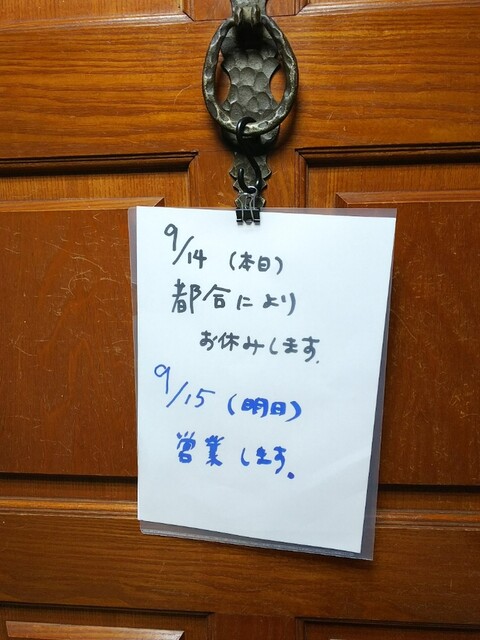 9/14 (本日)
都合により
お休みします.
9/15 (明日)
営業します。